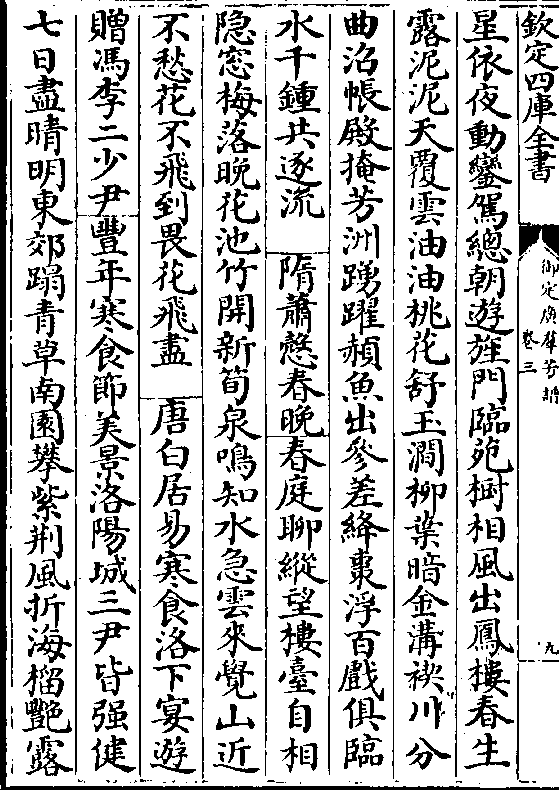 欽定四庫全書
御定廣羣芳譜
卷三
九
星依夜動鑾駕總朝遊旌門臨苑樹相風出鳳樓春生
露泥泥天覆雲油油桃花舒玉澗柳葉暗金溝禊川分
曲沼帳殿掩芳洲踴躍頳魚出參差絳棗浮百戲俱臨
水千鍾共逐流　隋蕭慤春晚春庭聊縱望樓臺自相
隐窓梅落晚花池竹開新筍泉鳴知水急雲來覺山近
不愁花不飛到畏花飛盡　唐白居易寒食洛下宴遊
贈馮李二少尹豐年寒食節美景洛陽城三尹皆强健
七日盡晴明東郊蹋青草南園攀紫荆風折海榴艷露